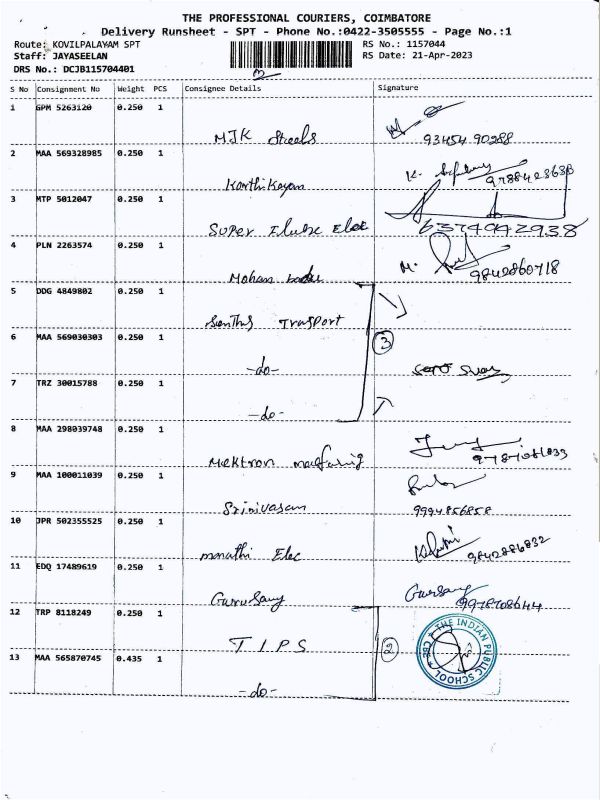 THE PROFESSIONAL COURIERS, COIMBATORE
Delivery Runsheet - SPT - Phone No.:0422-3505555 - Page No.:1
Route: KOVILPALAYAM SPT
RS No.: 1157044
Staff: JAYASEELAN
RS Date: 21-Apr-2023
DRS No.: DCJB115704401
S No Consignment No Weight PCS Consignee Details Signature
1 GPM 5263120 0.250 1
MJK Steels 93454 90288
2 MAA 569328985 0.250 1
Karthikeyan 9788423638
3 MTP 5012047 0.250 1
Super Elec 6374942938
4 PLN 2263574 0.250 1
Mohan M. 9842860718
5 DDG 4849802 0.250 1
6 MAA 569030303 0.250 1
3
-do-
7 TRZ 30015788 0.250 1
-do-
8 MAA 298039748 0.250 1
9 MAA 100011039 0.250 1
Srinivasan 9994856858
10 JPR 502355525 0.250 1
Elec 9842886832
11 EDQ 17489619 0.250 1
Gurusamy
12 TRP 8118249 0.250 1
TIPS
2
THE INDIAN PUBLIC SCHOOL CBE
13 MAA 565870745 0.435 1
-do-